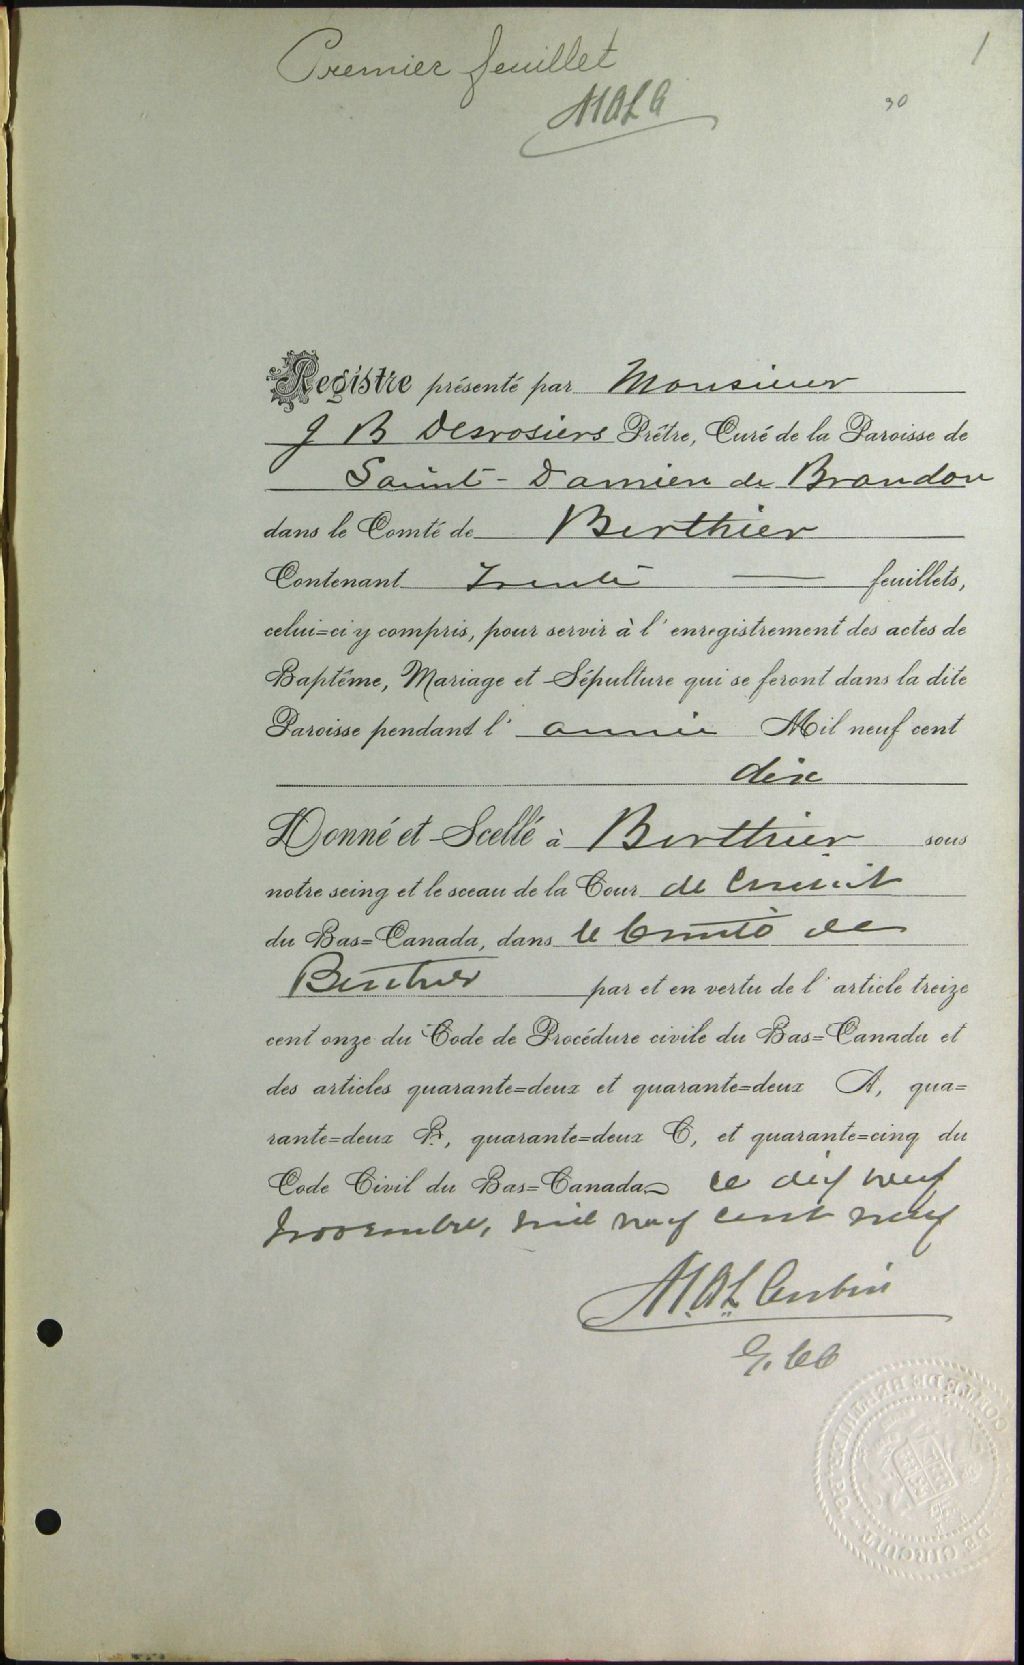 1
Premier feuillet
MALA
30
Registre présenté par Monsieur
J B Desrosiers Prêtre, Curé de la Paroisse de
Saint-Damien de Brandon
dans le Comté de Berthier
Contenant Trente feuillets,
celui=ci y compris, pour servir à l'enregistrement des actes de
Baptême, Mariage et Sépulture qui se feront dans la dite
Paroisse pendant l'année Mil neuf cent
dix
Donné et Scellé à Berthier sous
notre seing et le sceau de la Cour de Circuit
du Bas=Canada, dans le Comté de
Berthier par et en vertu de l'article treize
cent onze du Code de Procédure civile du Bas=Canada et
des articles quarante=deux et quarante=deux A, qua=
rante=deux B, quarante=deux C, et quarante=cinq du
Code Civil du Bas=Canada ce dix neuf
novembre, mil neuf cent neuf
M.A.L. Aubin
G. C C
COMTÉ DE BERTHIER
DE CIRCUIT